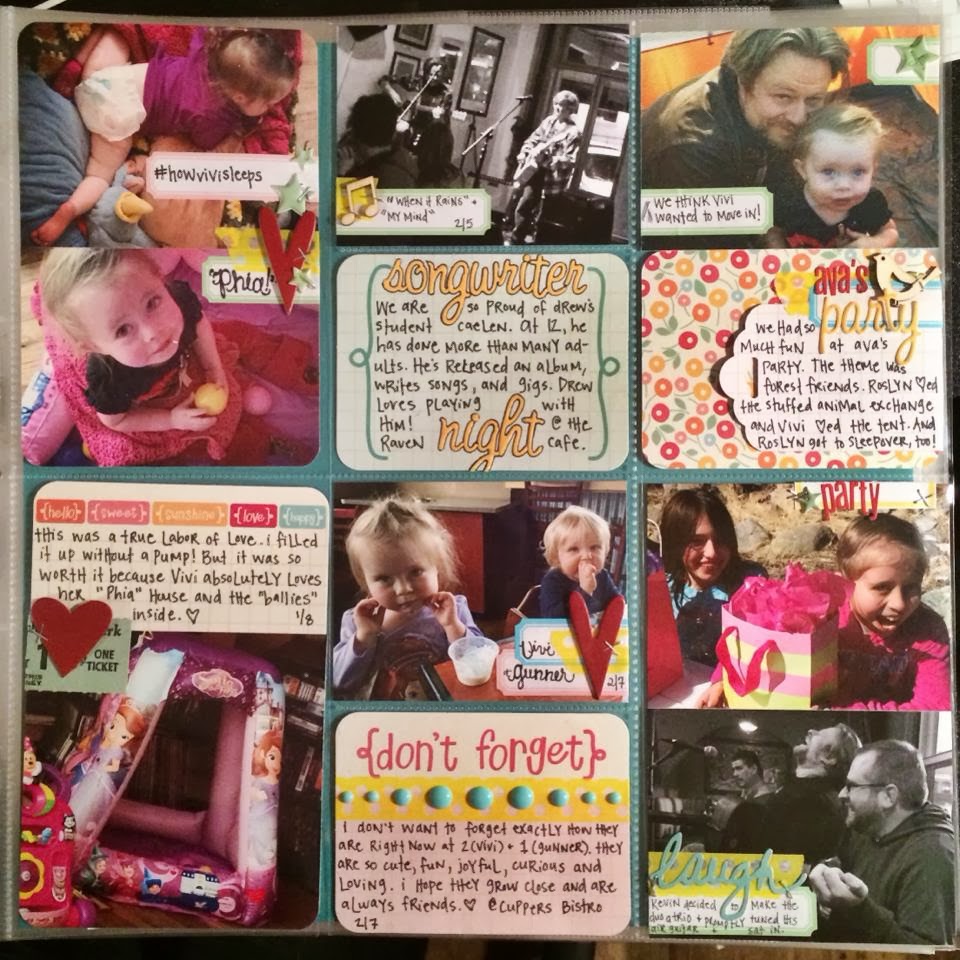 #howvivisleeps
"WHEN it RAINS" +
"MY MIND"
2/5
We think Vivi
wanted to Move in!
Phia!
songwriter
We are so proud of drew's
student caelen. at 12, he
has done more than many ad-
ults. He's Released an album,
writes songs, and gigs. Drew
Loves playing with
Him! @ the
Raven night cafe.
ava's
party
We Had so
Much fun at ava's
PARTY. The theme was
forest friends. Roslyn ♡ed
the stuffed animal exchange
and Vivi ♡ed the tent. And
Roslyn got to sleepover, too!
{hello} {sweet} {sunshine} {love} {happy}
this was a true Labor of Love..i filled
it up without a pump! But it was so
worth it because Vivi absolutely Loves
her "Phia" House and the "ballies"
inside. ♡ 1/8
ONE
TICKET
Vivi
+ gunner
2/7
party
{don't forget}
i don't want to forget exactly How they
are Right Now at 2 (Vivi) + 1 (gunner). they
are so cute, fun, joyful, curious and
Loving. i Hope they grow close and are
always friends. ♡ @ Cuppers Bistro
2/7
laugh
Kevin decided to make the
duo a trio + promptly tuned his
air guitar + sat in.